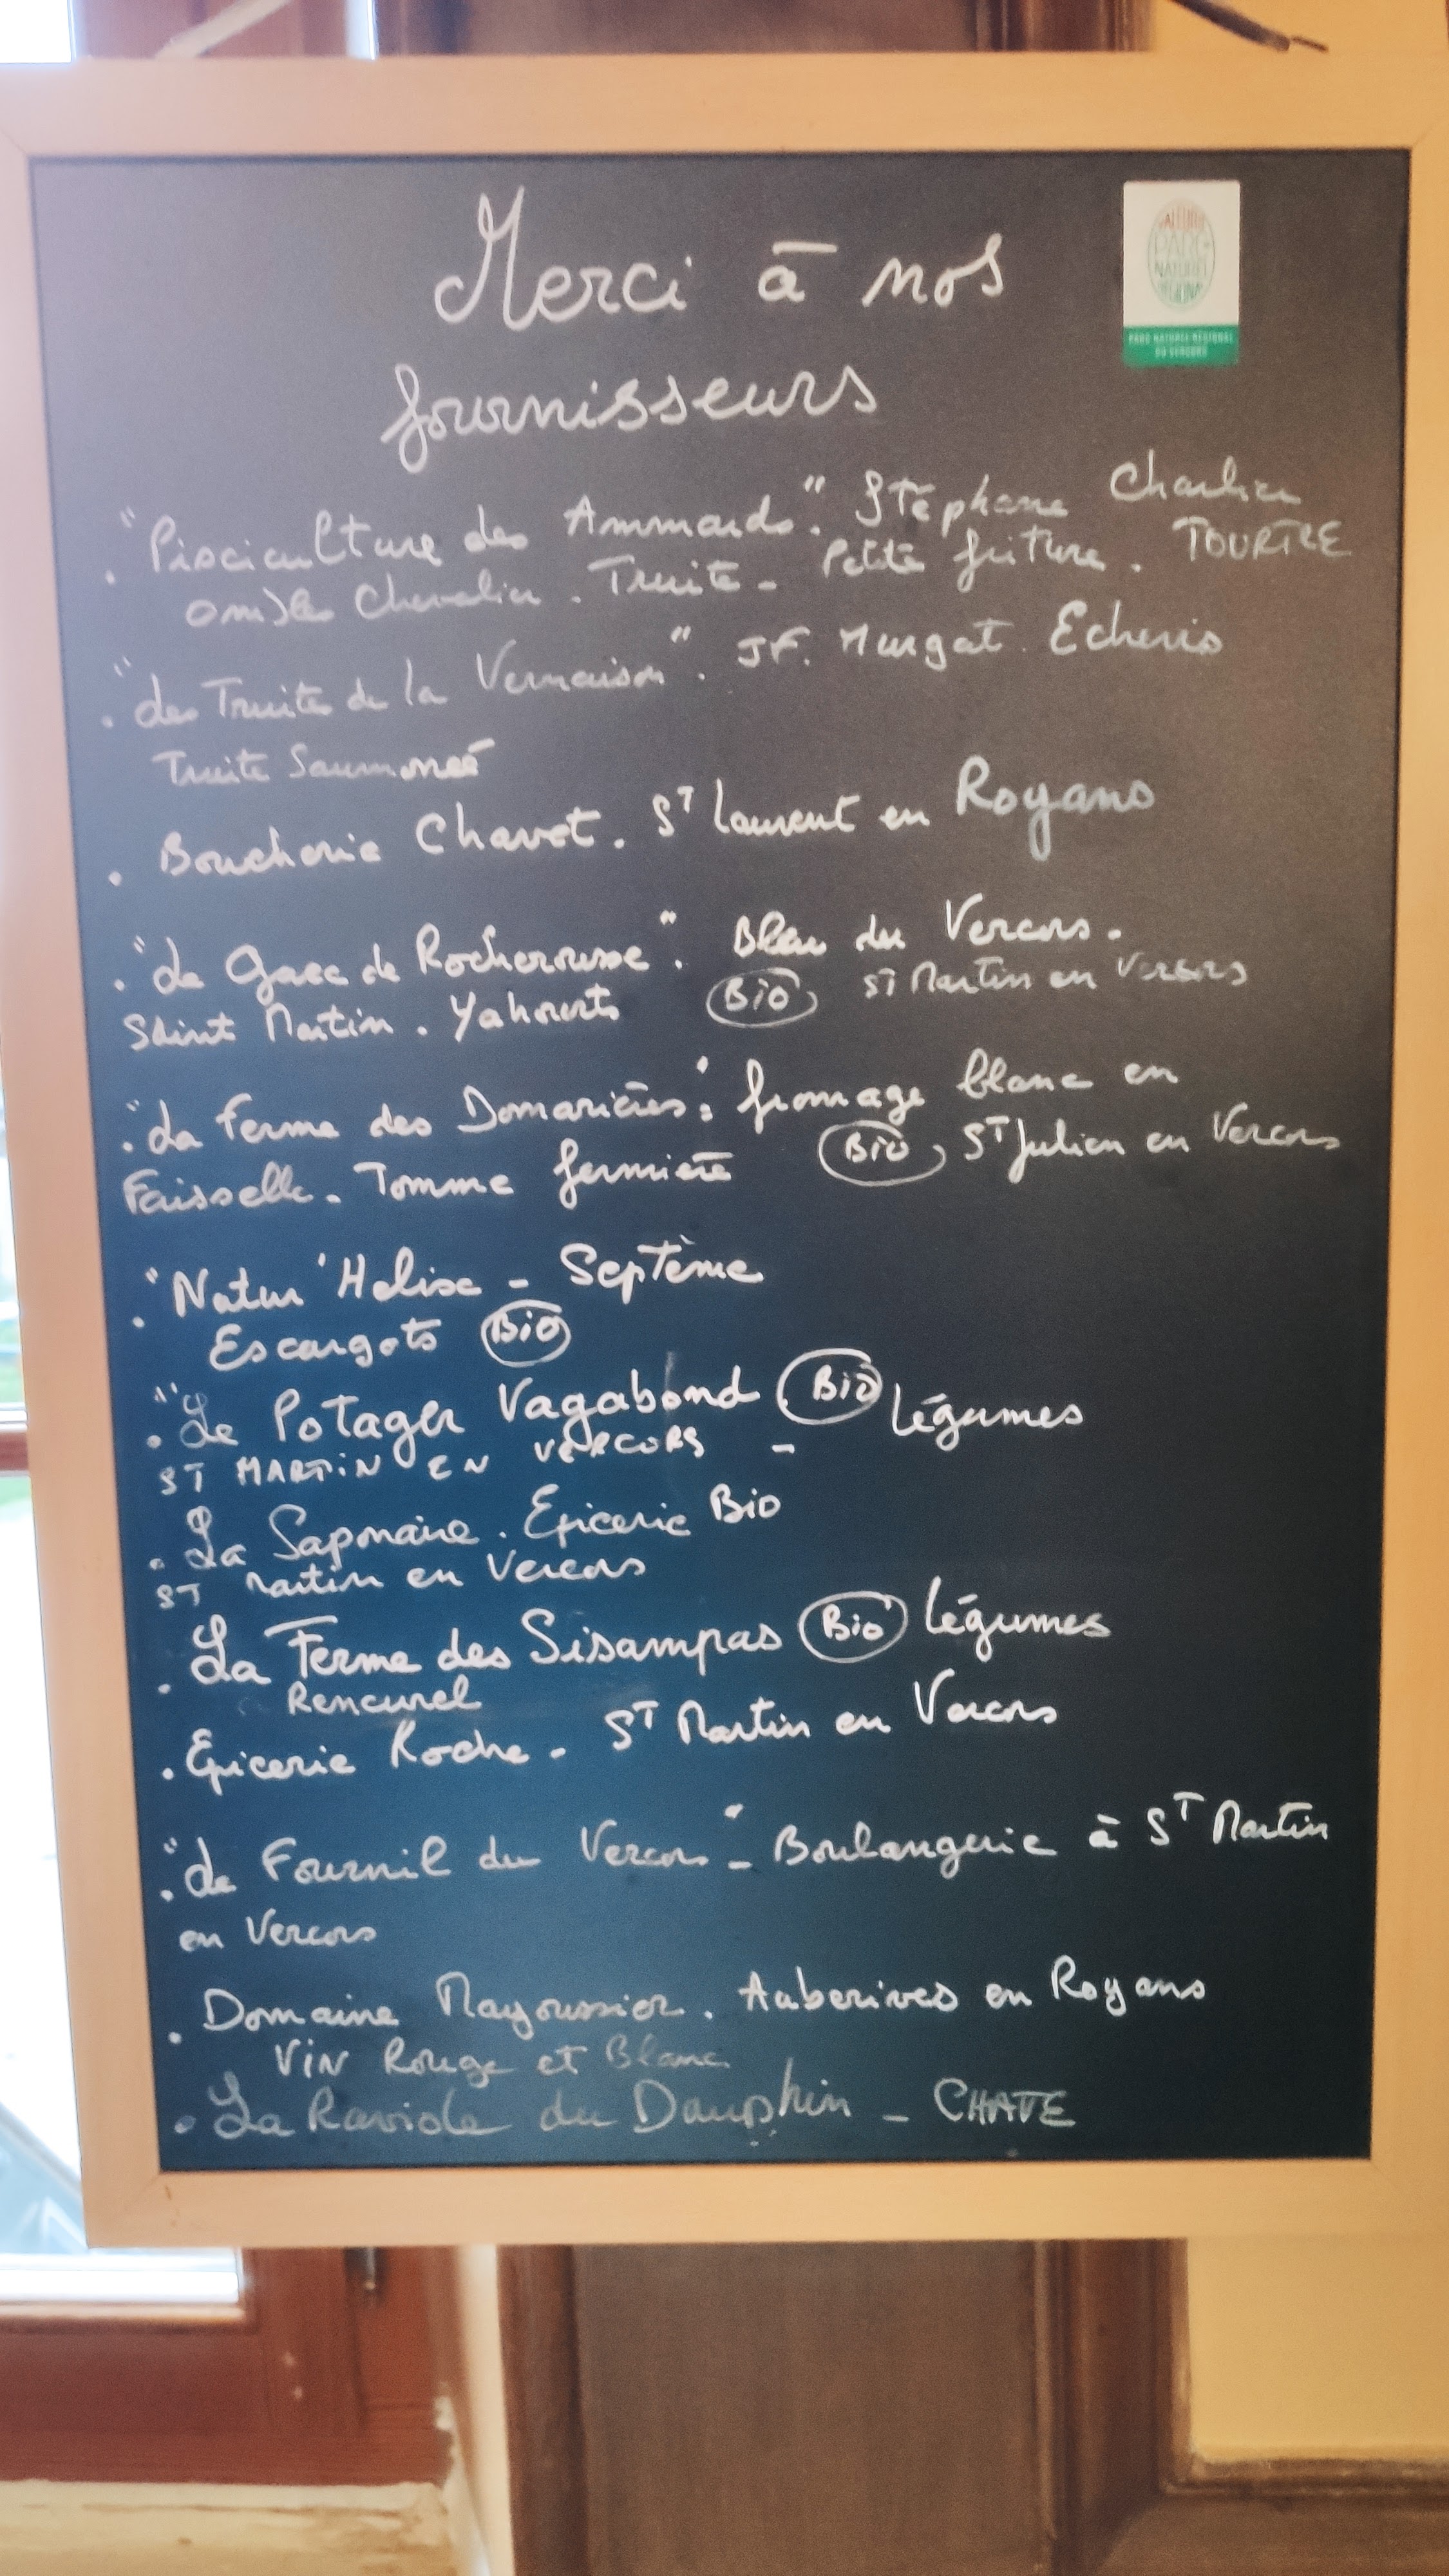 Merci à nos
VALEURS
PARC
NATUREL
RÉGIONAL
PARC NATUREL RÉGIONAL
DU VERCORS
fournisseurs
. "Pisciculture des Ammards". Stéphane Charlier
omble Chevalier. Truite - Petite friture. TOURTRE
. "Les Truites de la Vernaison". JF. Murgat. Echevis
Truite Saumonée
. Boucherie Chavet. ST Laurent en Royans
. "Le Gaec de Rocherousse". Bleu du Vercors.
Saint Martin. Yahourts Bio ST Martin en Vercors
. "La Ferme des Domarières": fromage blanc en
Faisselle. Tomme fermière Bio, ST Julien en Vercors
. "Natur'Helixe - Septème
Escargots Bio
. "Le Potager Vagabond Bio légumes
ST MARTIN EN VERCORS -
. La Saponaire. Epicerie Bio
ST Martin en Vercors
. La Ferme des Sisampas Bio légumes
Rencurel
. Epicerie Roche - ST Martin en Vercors
. "Le Fournil du Vercors" - Boulangerie à ST Martin
en Vercors
. Domaine Mayoussier. Auberives en Royans
VIN Rouge et Blanc
. La Raviole du Dauphin - CHATE